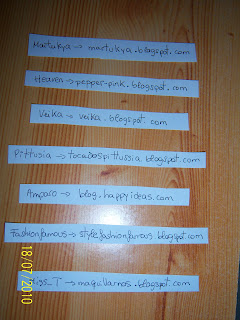 Martukya → martukya.blogspot.com
Heaven → pepper-pink.blogspot.com
Veika → veika.blogspot.com
Pittusia → tocadospittussia.blogspot.com
Amparo → blog.happyideas.com
Fashionfamous → stylefashionfamous.blogspot.com
→ maquillarnos.blogspot.com
18/07/2010